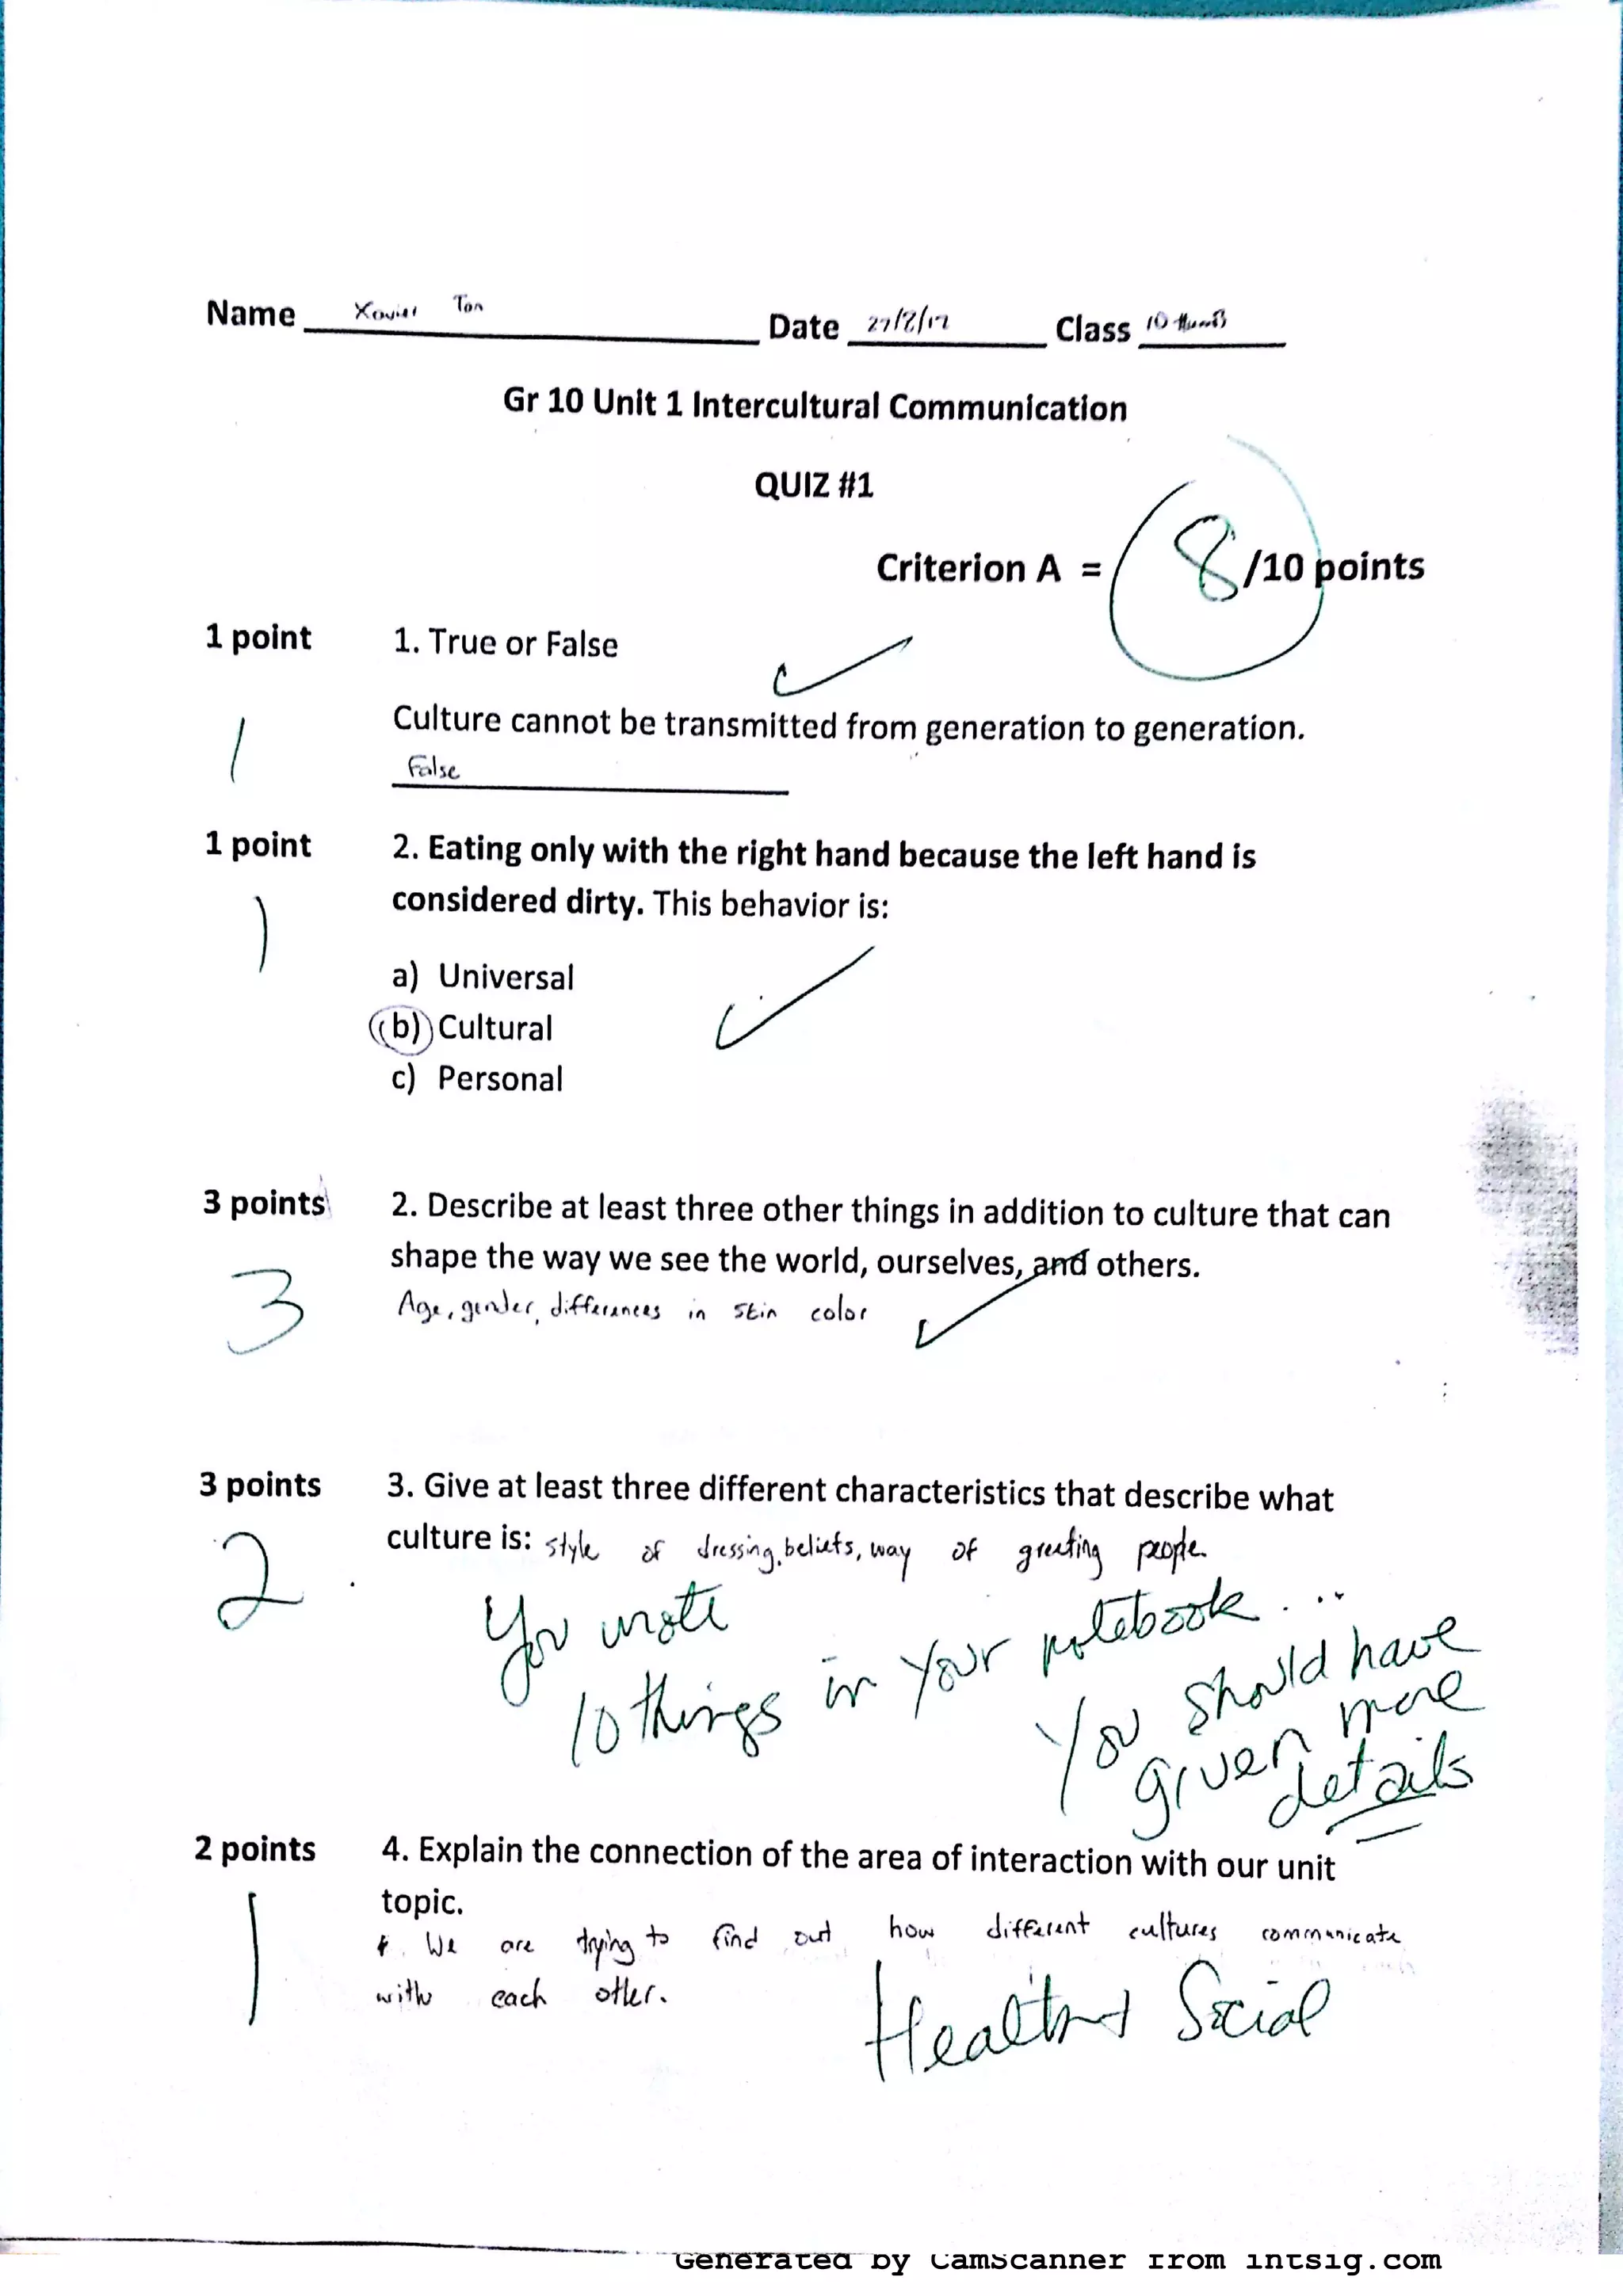 Name Xavier Tan Date 27/8/12 Class 10
Gr 10 Unit 1 Intercultural Communication
QUIZ #1
Criterion A = 8/10 points
1 point 1. True or False
Culture cannot be transmitted from generation to generation.
1 False
1 point 2. Eating only with the right hand because the left hand is
considered dirty. This behavior is:
1
a) Universal
b) Cultural
c) Personal
3 points 2. Describe at least three other things in addition to culture that can
shape the way we see the world, ourselves, and others.
3 Age, gender, differences in skin color
3 points 3. Give at least three different characteristics that describe what
culture is: style of dressing, beliefs, way of greeting people.
2
You wrote
10 things in your notebook...
You should have
given more
details
2 points 4. Explain the connection of the area of interaction with our unit
topic.
1 We are trying to find out how different cultures communicate
with each other.
Health Social
Generated by CamScanner from intsig.com